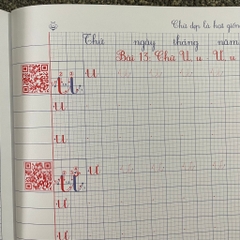 Chữ đẹp là hoa
Thứ ngày tháng năm
Bài 13: Chữ U, u U, u
u
u
u
u
u
u